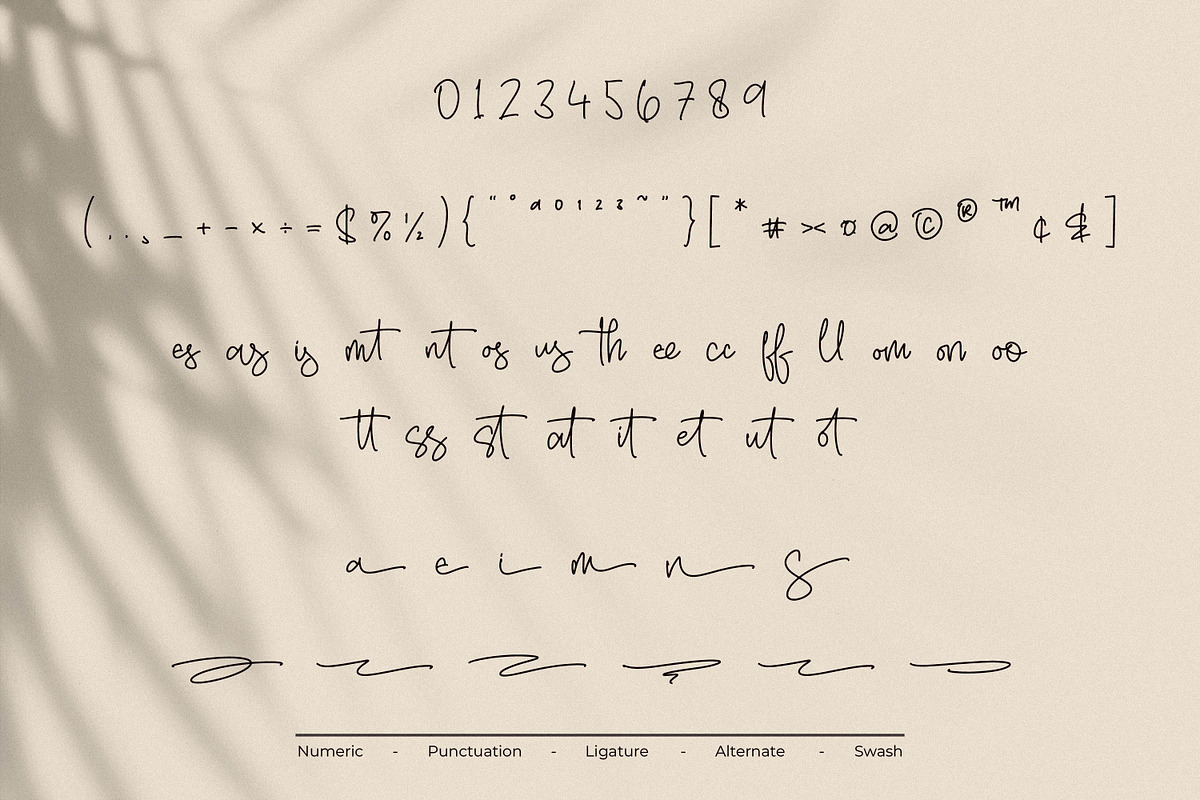 0123456789
(.,;_+-×÷=$%½){"°a0123~"}[*#><¤@©®™¢$]
es as is mt nt os us th ee cc ff ll om on oo
tt ss st at it et ut ot
a e i m n s
Numeric - Punctuation - Ligature - Alternate - Swash